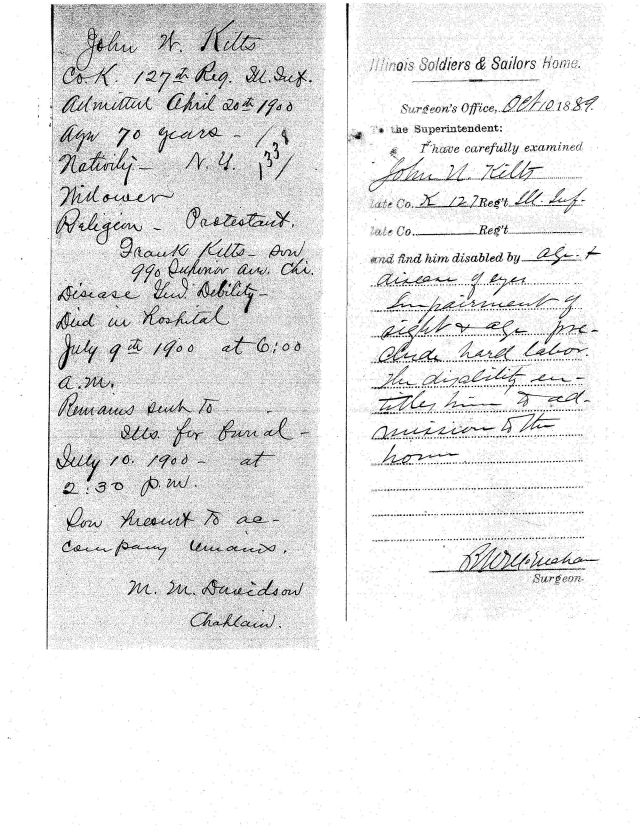 John W. Kitts
Co. K. 127th Reg. Ill. Inf.
Admitted April 20th 1900
Age 70 years - 1338
Nativity - N. Y.
Widower
Religion - Protestant.
Frank Kitts - son
990 Superior Ave. Chi.
Disease Gen'l. Debility -
Died in Hospital
July 9th 1900 at 6:00
a.m.
Remains sent to
Ills. for burial -
July 10. 1900 - at
2:30 p.m.
Son present to ac-
company remains.
M. M. Davidson
Chaplain.
Illinois Soldiers & Sailors Home.
Surgeon's Office, Oct 10 1889.
To the Superintendent:
I have carefully examined
John W. Kitts
late Co. K 127 Reg't Ill. Inf.
late Co. Reg't
and find him disabled by age &
disease of eyes
Impairment of
sight & age pre-
clude hard labor.
The disability en-
titles him to ad-
mission to the
home
Surgeon.